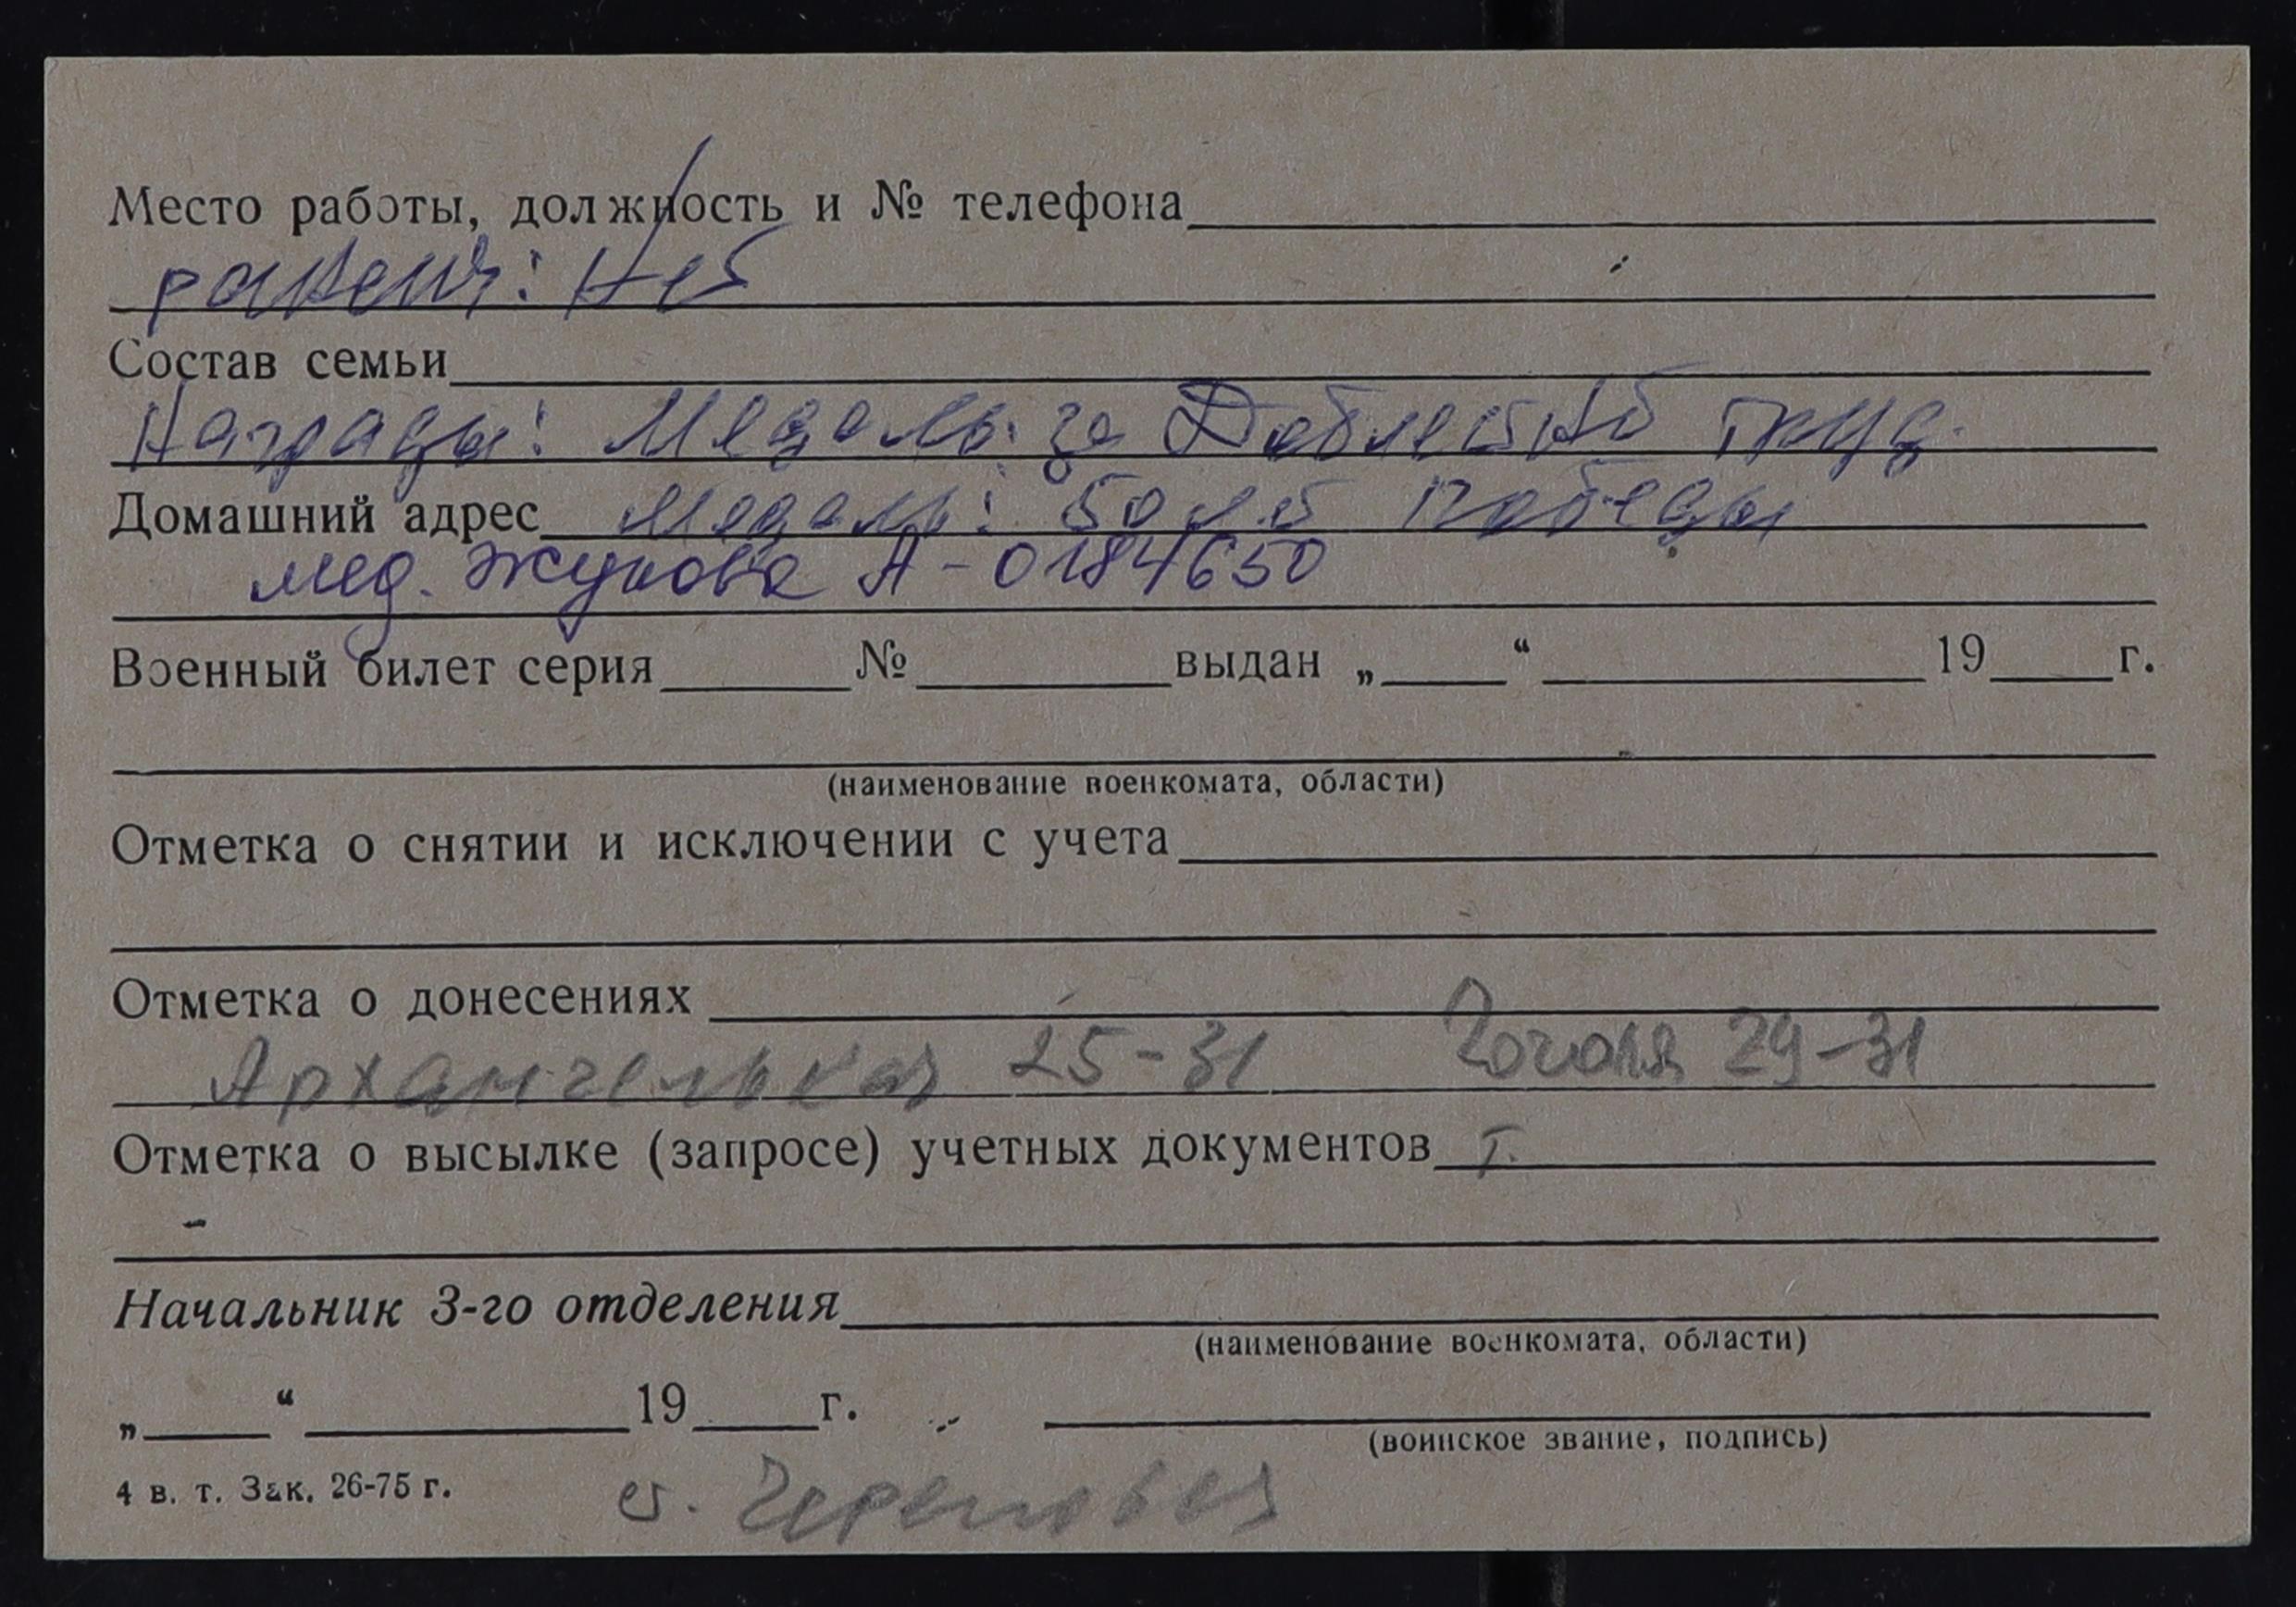 Место работы, должность и № телефона
ранений: Нет
Состав семьи
Награды: Медаль за Доблестный труд.
Домашний адрес Медаль: 50 лет Победы
мед. Жукова А-0184650
Военный билет серия № выдан „ “ 19 г.
(наименование военкомата, области)
Отметка о снятии и исключении с учета
Отметка о донесениях
Архангелькая 25-31 Гоголя 29-31
Отметка о высылке (запросе) учетных документов Т.
Начальник 3-го отделения
(наименование военкомата, области)
„ “ 19 г.
(воинское звание, подпись)
4 в. т. Зак. 26-75 г.